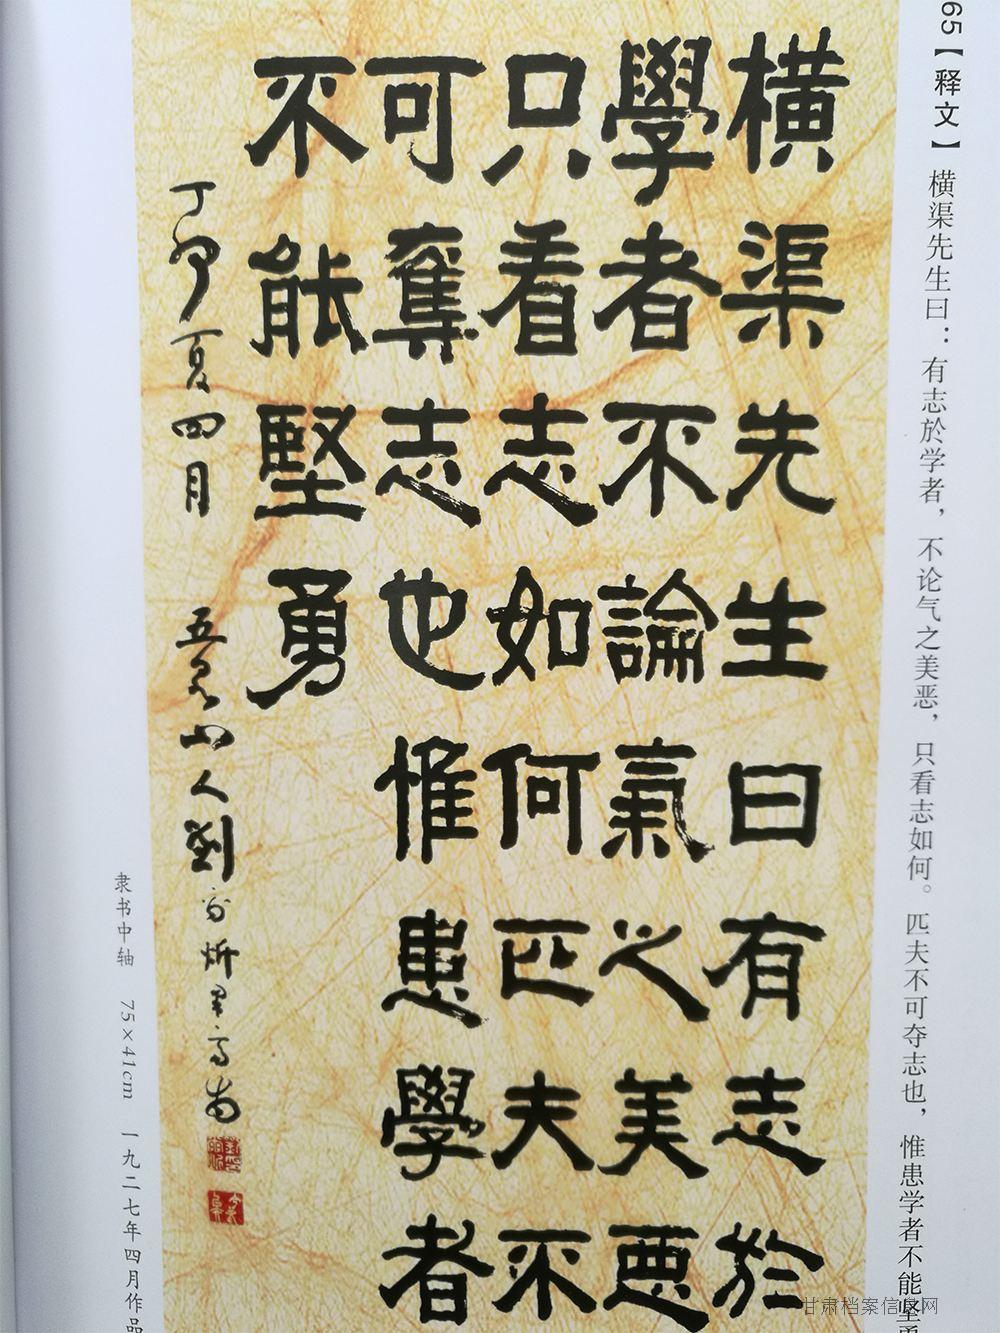 65【释文】横渠先生曰：有志於学者，不论气之美恶，只看志如何。匹夫不可夺志也，惟患学者不能坚勇
横渠先生曰有志於
學者不論氣之美惡
只看志如何匹夫不
可奪志也惟患學者
不能堅勇
丁卯夏四月 五泉山人劉爾炘
隶书中轴 75×41cm 一九二七年四月作品
甘肃档案信息网